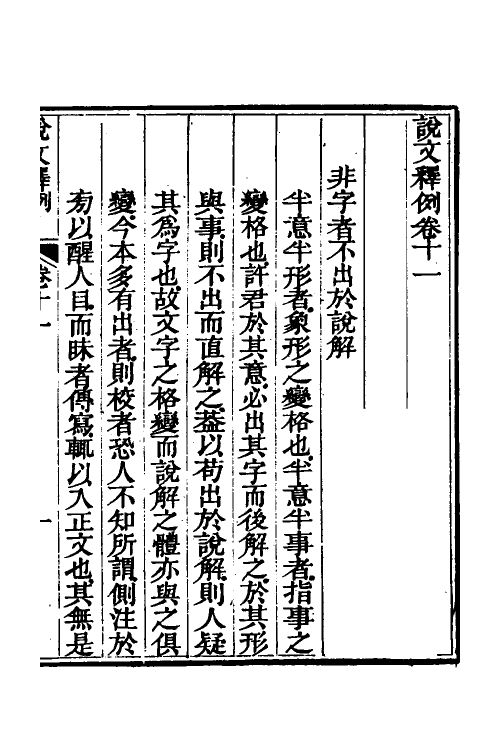 說文釋例卷十一
非字者不出於說解
半意半形者象形之變格也半意半事者指事之
變格也許君於其意必出其字而後解之於其形
與事則不出而直解之葢以苟出於說解則人疑
其爲字也故文字之格變而說解之體亦與之俱
變今本多有出者則校者恐人不知所謂側注於
㫄以醒人目而昧者傳寫輒以入正文也其無是
說文釋例
卷十一
一